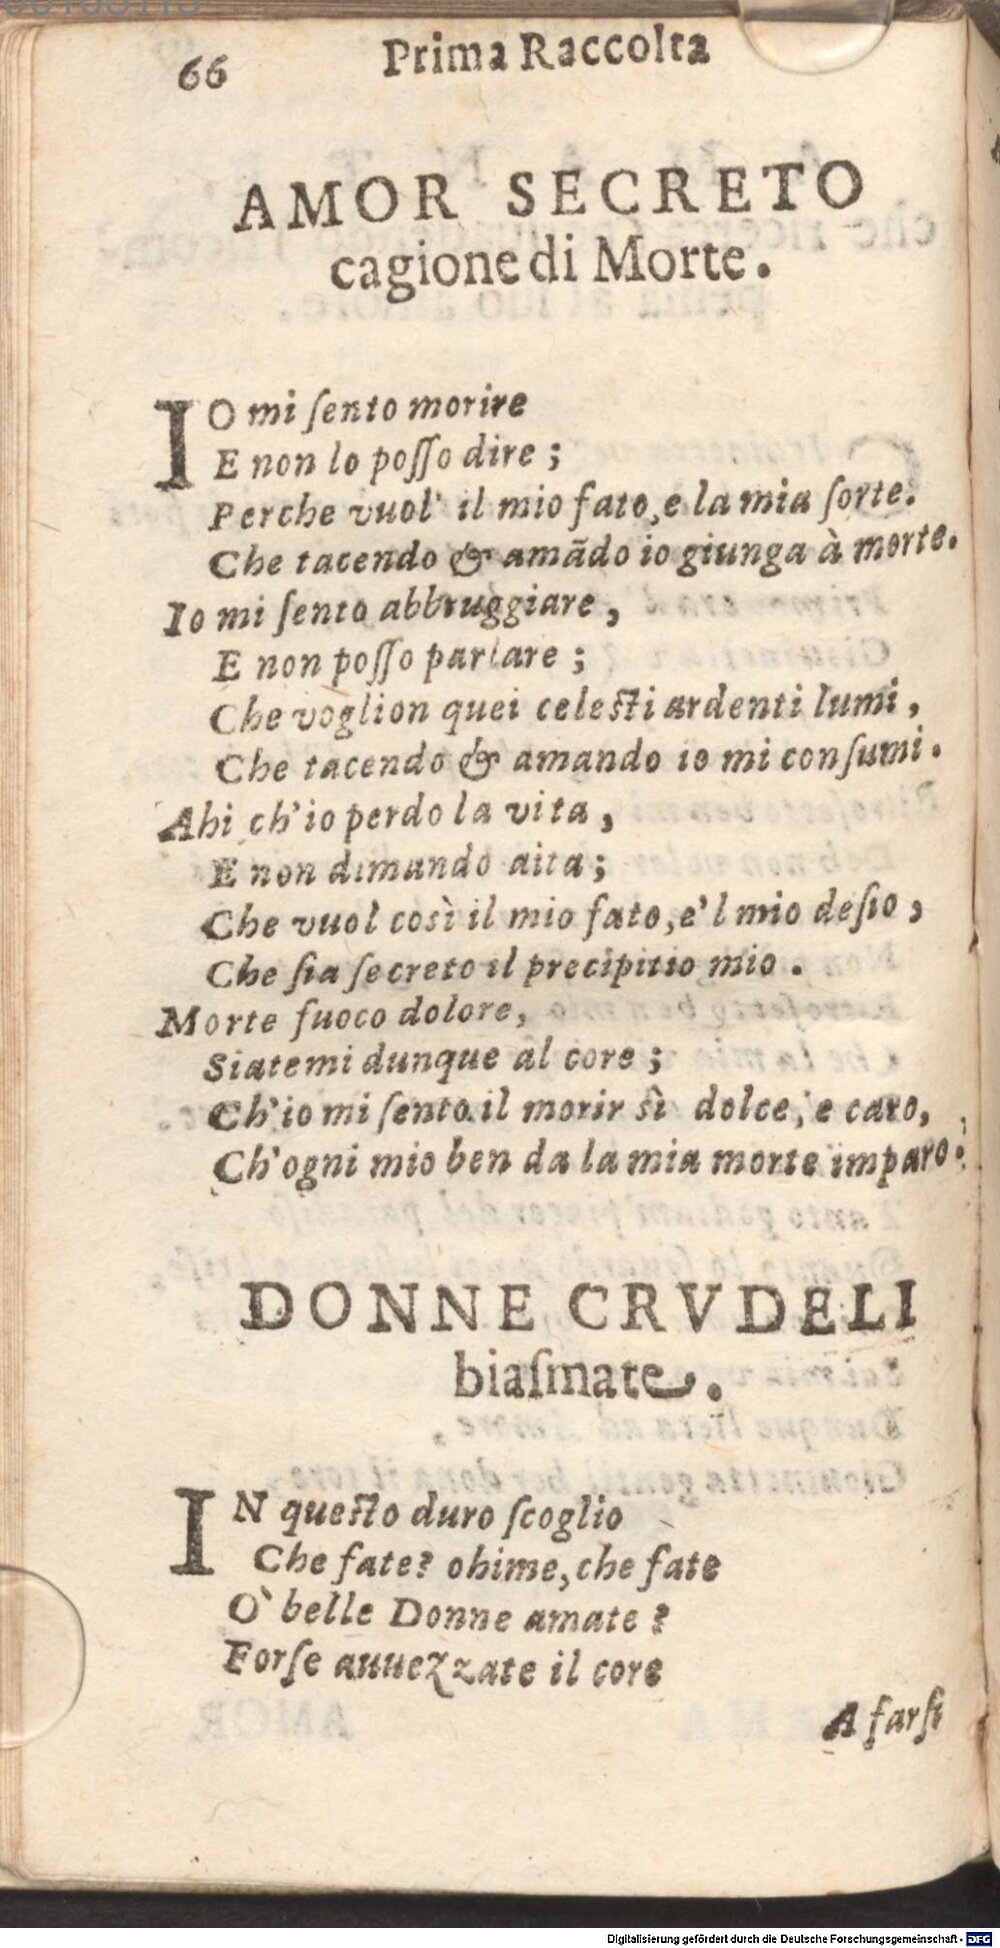 66
Prima Raccolta
AMOR SECRETO
cagione di Morte.
IO mi ſento morire
E non lo poſſo dire;
Perche vuol' il mio fato, e la mia ſorte.
Che tacendo & amãdo io giunga à morte.
Io mi ſento abbruggiare,
E non poſſo parlare;
Che voglion quei celeſti ardenti lumi,
Che tacendo & amando io mi conſumi.
Ahi ch'io perdo la vita,
E non dimando aita;
Che vuol così il mio fato, e'l mio deſio,
Che ſia ſecreto il precipitio mio.
Morte fuoco dolore,
Siatemi dunque al core;
Ch'io mi ſento il morir sì dolce, e caro,
Ch'ogni mio ben da la mia morte imparo.
DONNE CRVDELI
biaſmate.
IN queſto duro ſcoglio
Che fate? ohime, che fate
O' belle Donne amate?
Forſe auuezzate il core
A farſi
Digitalisierung gefördert durch die Deutsche Forschungsgemeinschaft - DFG